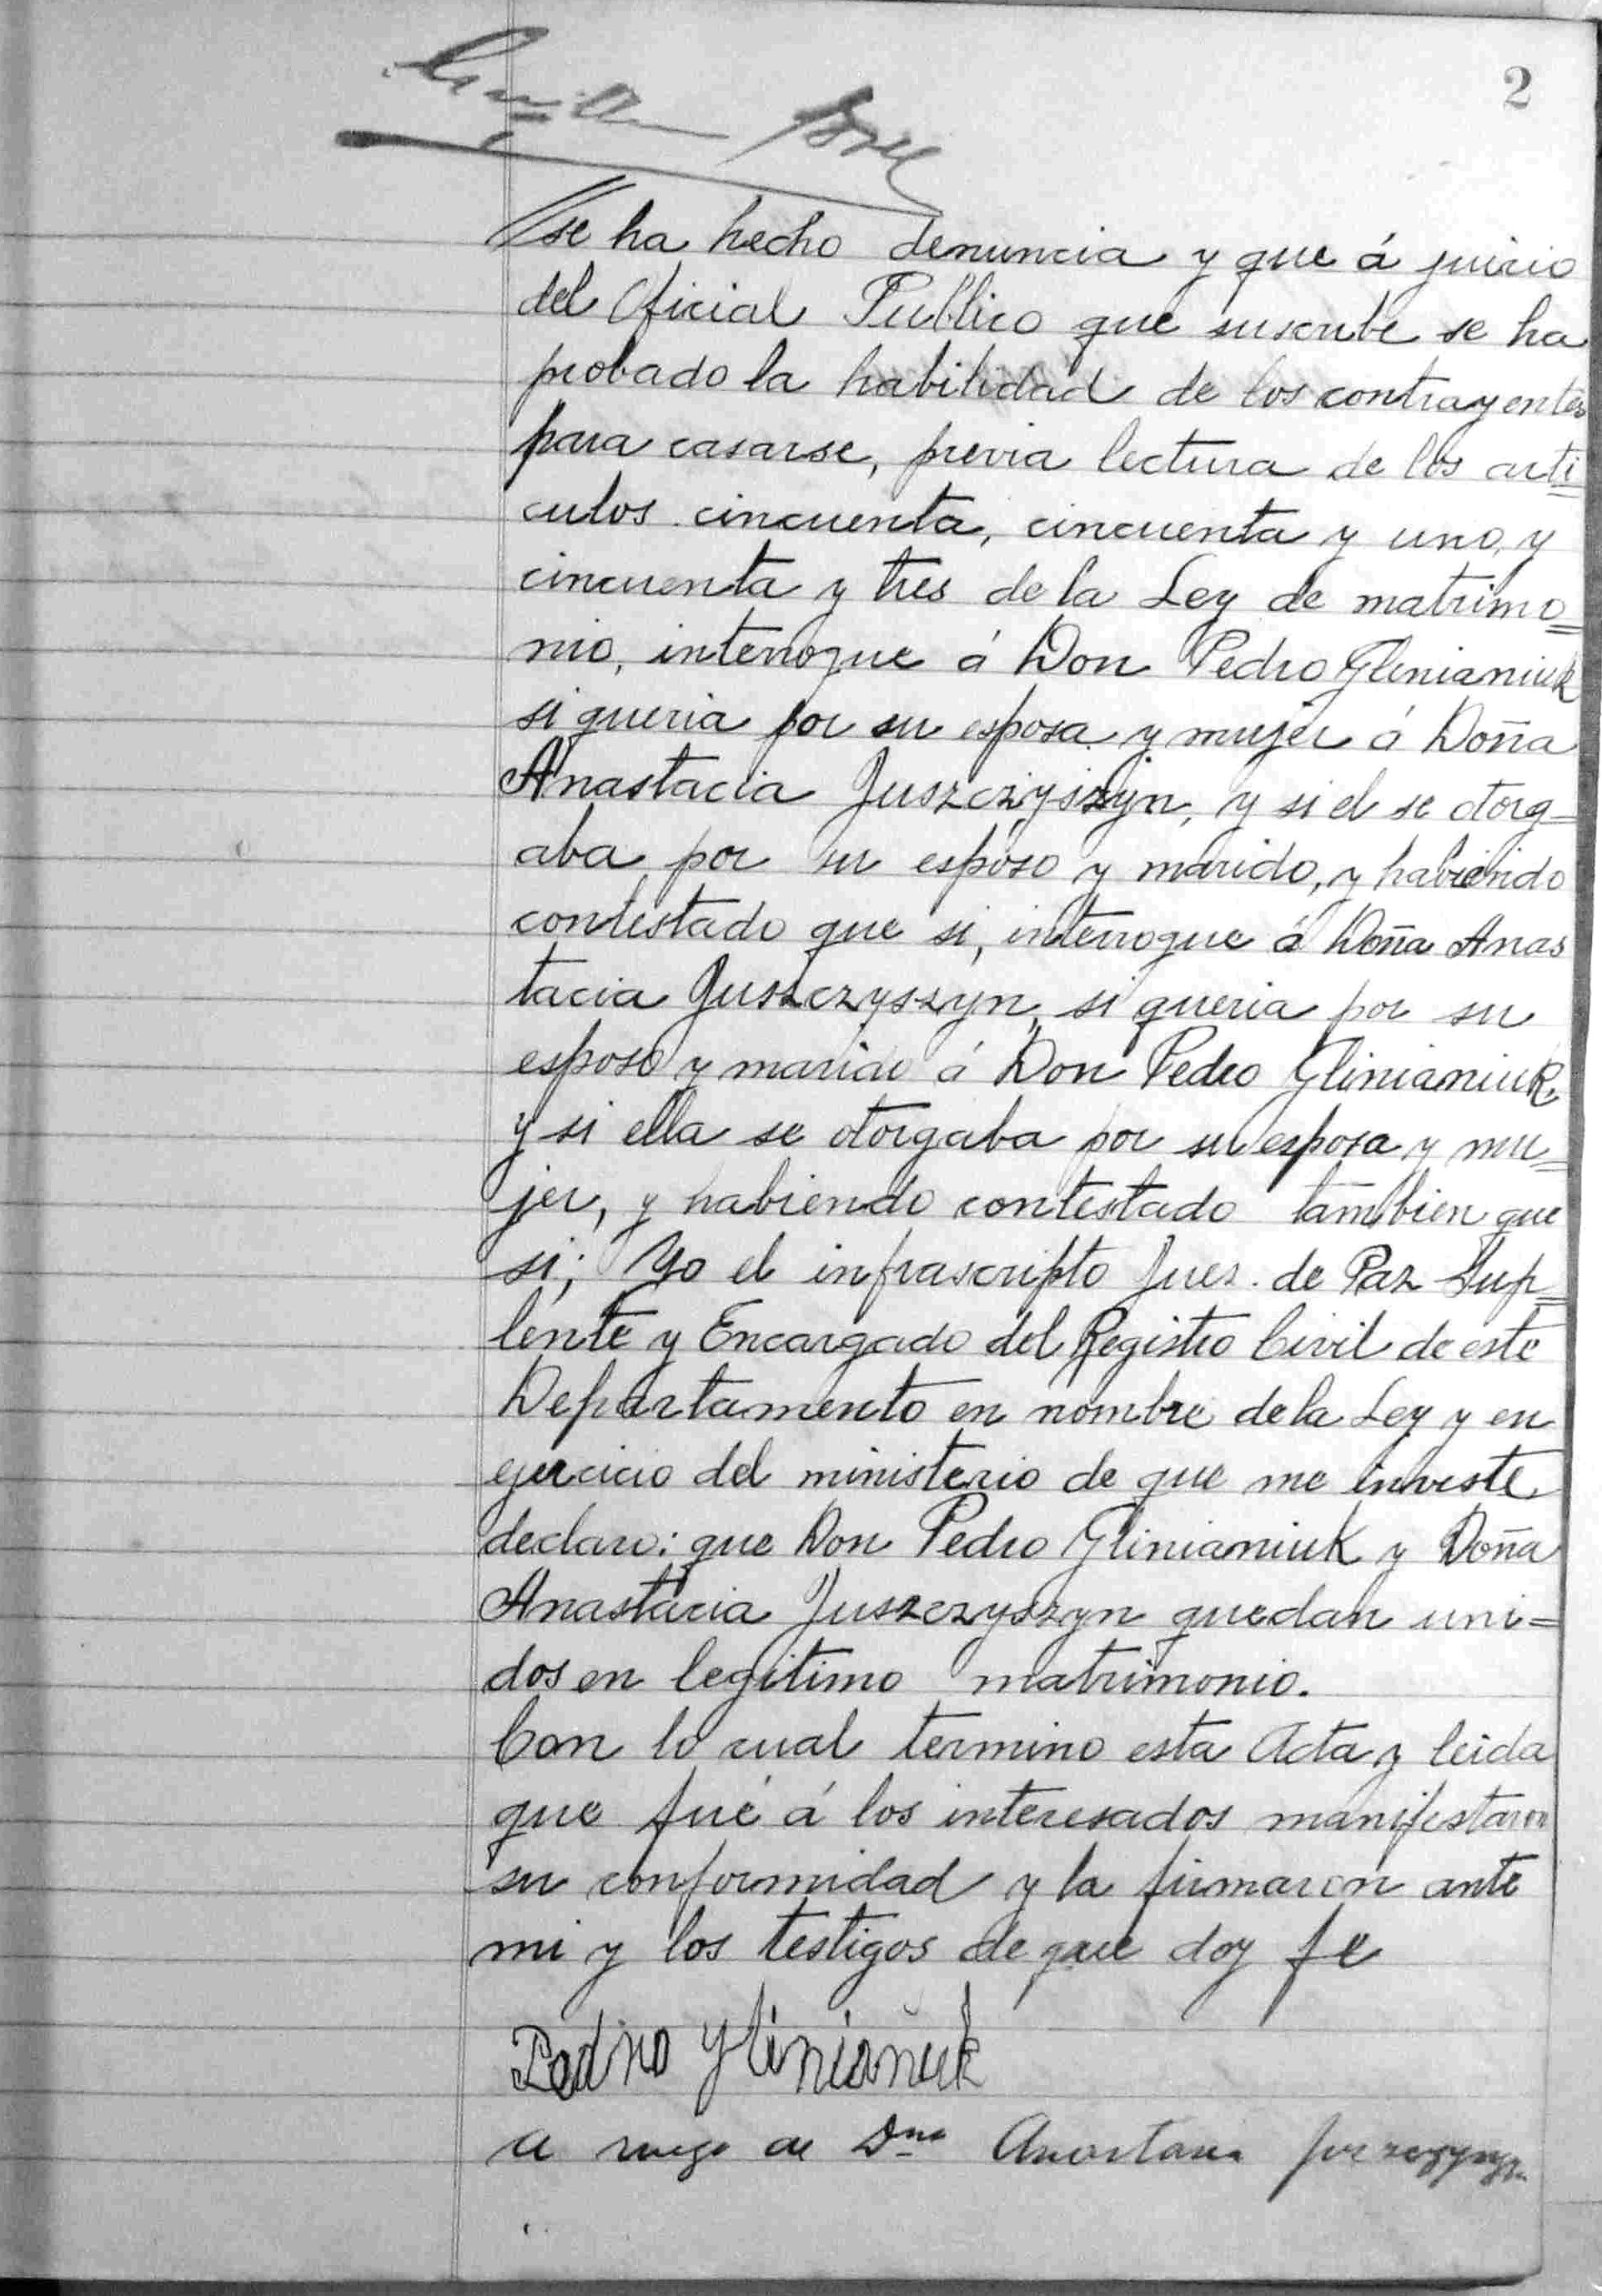 2
se ha hecho denuncia y que á juicio
del Oficial Publico que suscribe se ha
probado la habilidad de los contrayentes
para casarse, previa lectura de los arti=
culos cincuenta, cincuenta y uno, y
cincuenta y tres de la Ley de matrimo=
nio, interrogue á Don Pedro Glinianiuk
si queria por su esposa y mujer á Doña
Anastacia Juszczyszyn, y si el se otorg=
aba por su esposo y marido, y habiendo
contestado que si, interrogue á Doña Anas
tacia Juszczyszyn, si queria por su
esposo y marido á Don Pedro Glinianiuk
y si ella se otorgaba por su esposa y mu=
jer, y habiendo contestado tambien que
si; Yo el infrascripto Juez de Paz Sup=
lente y Encargado del Registro Civil de este
Departamento en nombre de la Ley y en
ejercicio del ministerio de que me inviste
declaro: que Don Pedro Glinianiuk y Doña
Anastacia Juszczyszyn quedan uni=
dos en legitimo matrimonio.
Con lo cual termino esta Acta y leida
que fué á los interesados manifestaron
su conformidad y la firmaron ante
mi y los testigos de que doy fe
Pedro Glinianiuk
a ruego de Dña Anastacia